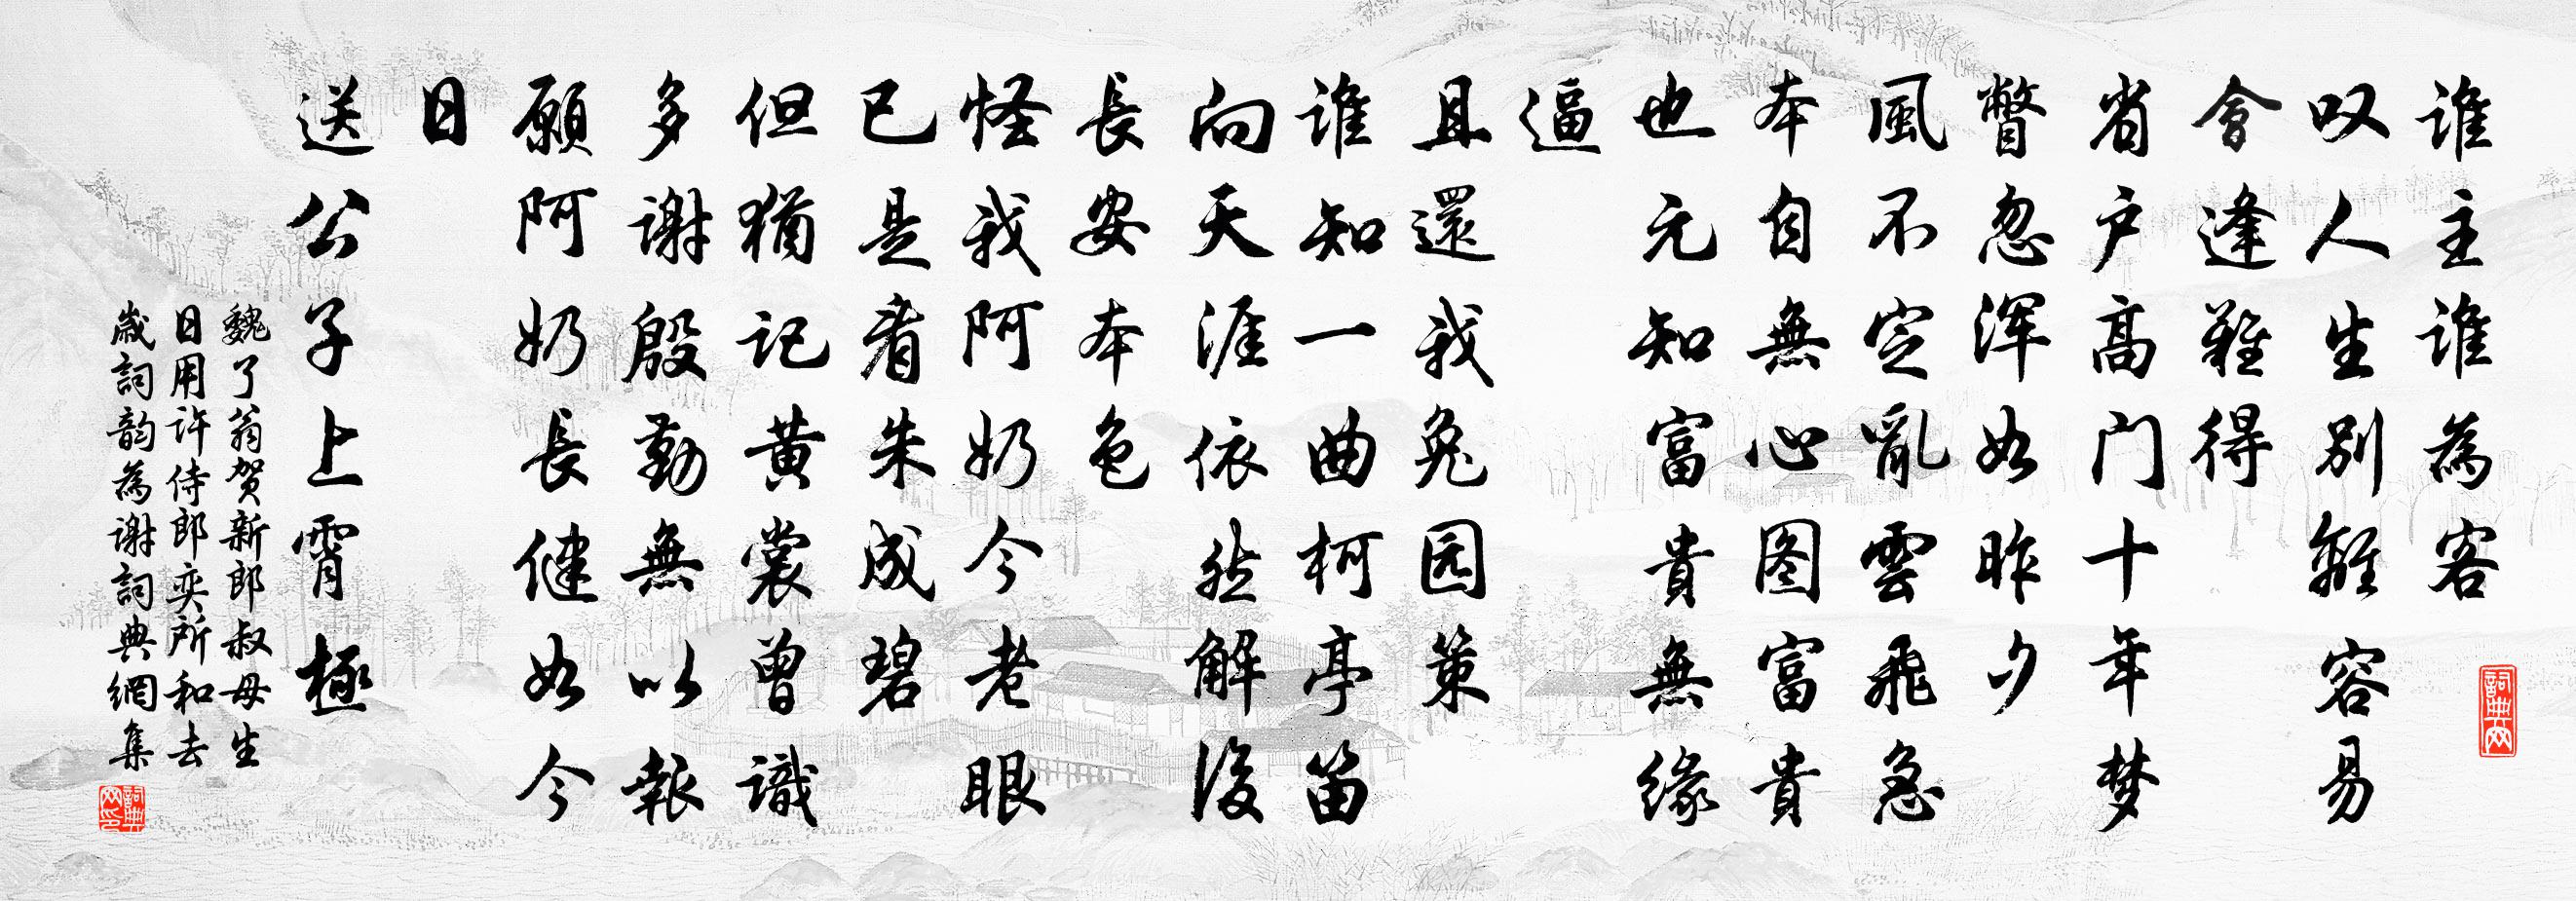 誰主誰為客
叹人生別離容易
會逢難得
省户高门十年梦
瞥忽浑如昨夕
風不定亂雲飛急
本自無心图富貴
也元知富貴無緣
逼
且還我兔园策
誰知一曲柯亭笛
向天涯依然解後
長安本色
怪我阿奶今老眼
已是看朱成碧
但猶記黄裳曾識
多謝殷勤無以報
願阿奶長健如今
日
送公子上霄極
魏了翁贺新郎叔母生
日用许侍郎奕所和去
歲詞韵為謝詞典網集
詞典网
詞典网印